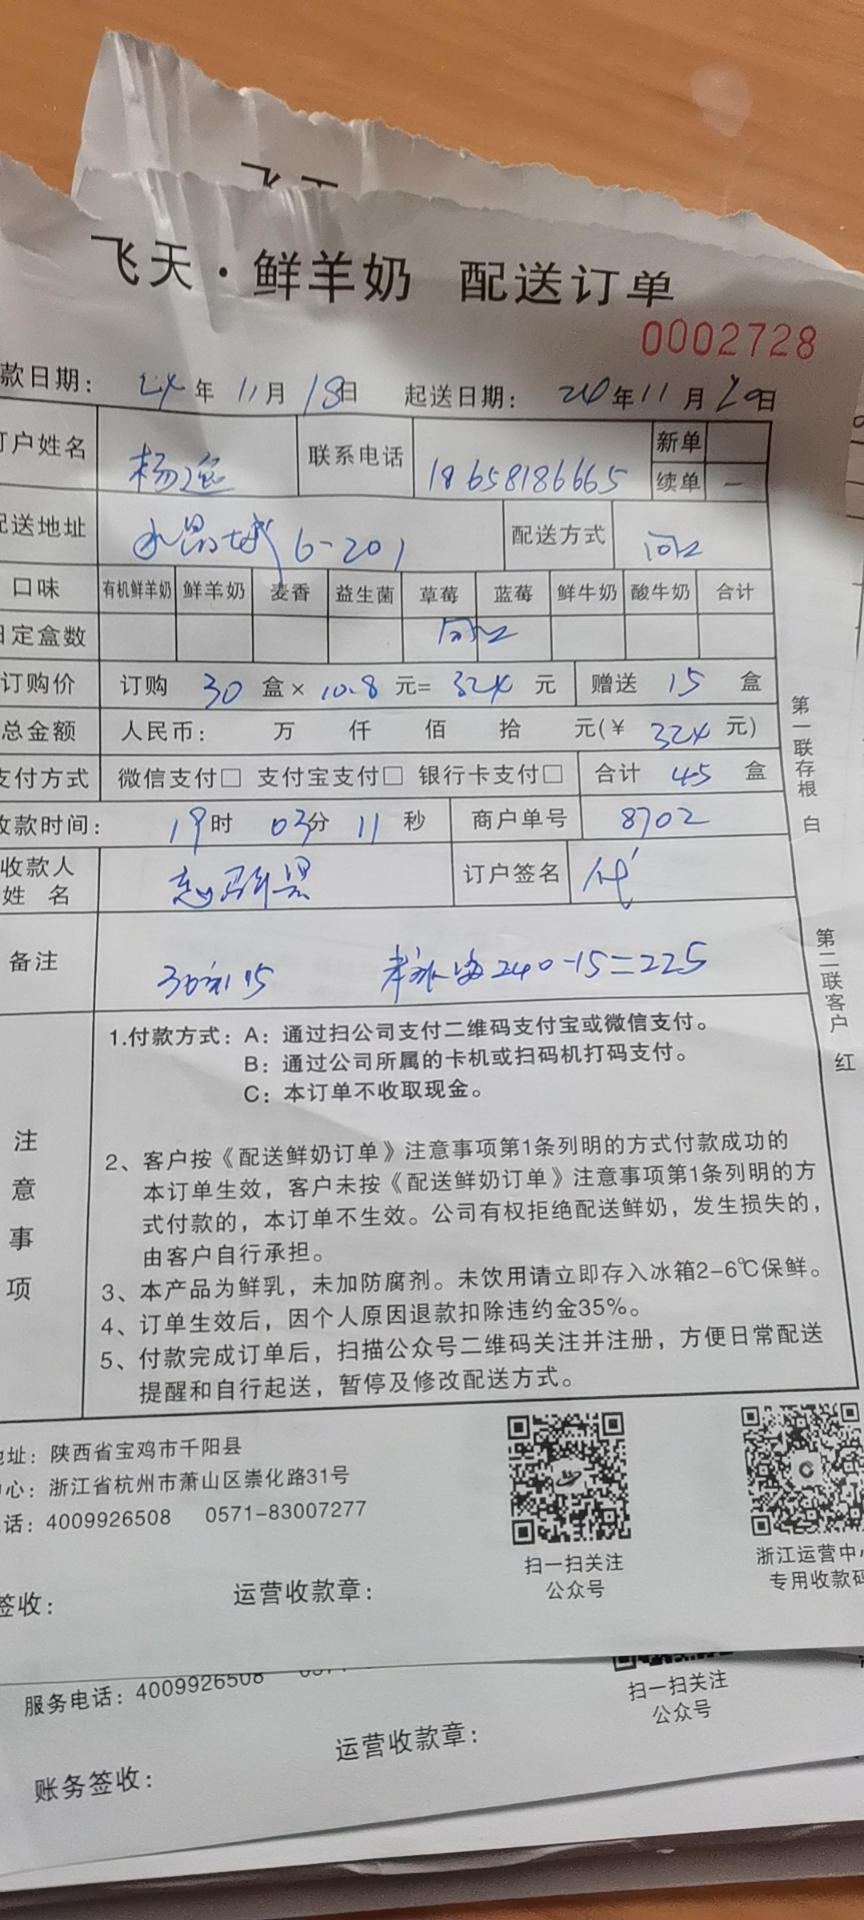 飞天
飞天·鲜羊奶 配送订单
0002728
款日期: 24年11月18日 起送日期: 24年11月20日
订户姓名 杨逸 联系电话 18658186665 新单
续单 一
配送地址 水晶城6-201 配送方式 同上
口味 有机鲜羊奶 鲜羊奶 麦香 益生菌 草莓 蓝莓 鲜牛奶 酸牛奶 合计
日定盒数 同上
订购价 订购 30 盒× 10.8 元= 324 元 赠送 15 盒
总金额 人民币: 万 仟 佰 拾 元(¥ 324 元)
支付方式 微信支付□ 支付宝支付□ 银行卡支付□ 合计 45 盒
收款时间: 19时 03分 11秒 商户单号 8702
收款人
姓 名
订户签名 代
备注 30送15 240-15=225
第一联存根 白
第二联客户 红
注意事项
1.付款方式: A: 通过扫公司支付二维码支付宝或微信支付。
B: 通过公司所属的卡机或扫码机打码支付。
C: 本订单不收取现金。
2、客户按《配送鲜奶订单》注意事项第1条列明的方式付款成功的
本订单生效，客户未按《配送鲜奶订单》注意事项第1条列明的方
式付款的，本订单不生效。公司有权拒绝配送鲜奶，发生损失的，
由客户自行承担。
3、本产品为鲜乳，未加防腐剂。未饮用请立即存入冰箱2-6℃保鲜。
4、订单生效后，因个人原因退款扣除违约金35%。
5、付款完成订单后，扫描公众号二维码关注并注册，方便日常配送
提醒和自行起送，暂停及修改配送方式。
地址: 陕西省宝鸡市千阳县
中心: 浙江省杭州市萧山区崇化路31号
电话: 4009926508 0571-83007277
扫一扫关注
公众号
浙江运营中心
专用收款码
签收: 运营收款章:
服务电话: 4009926508
扫一扫关注
公众号
运营收款章:
账务签收: